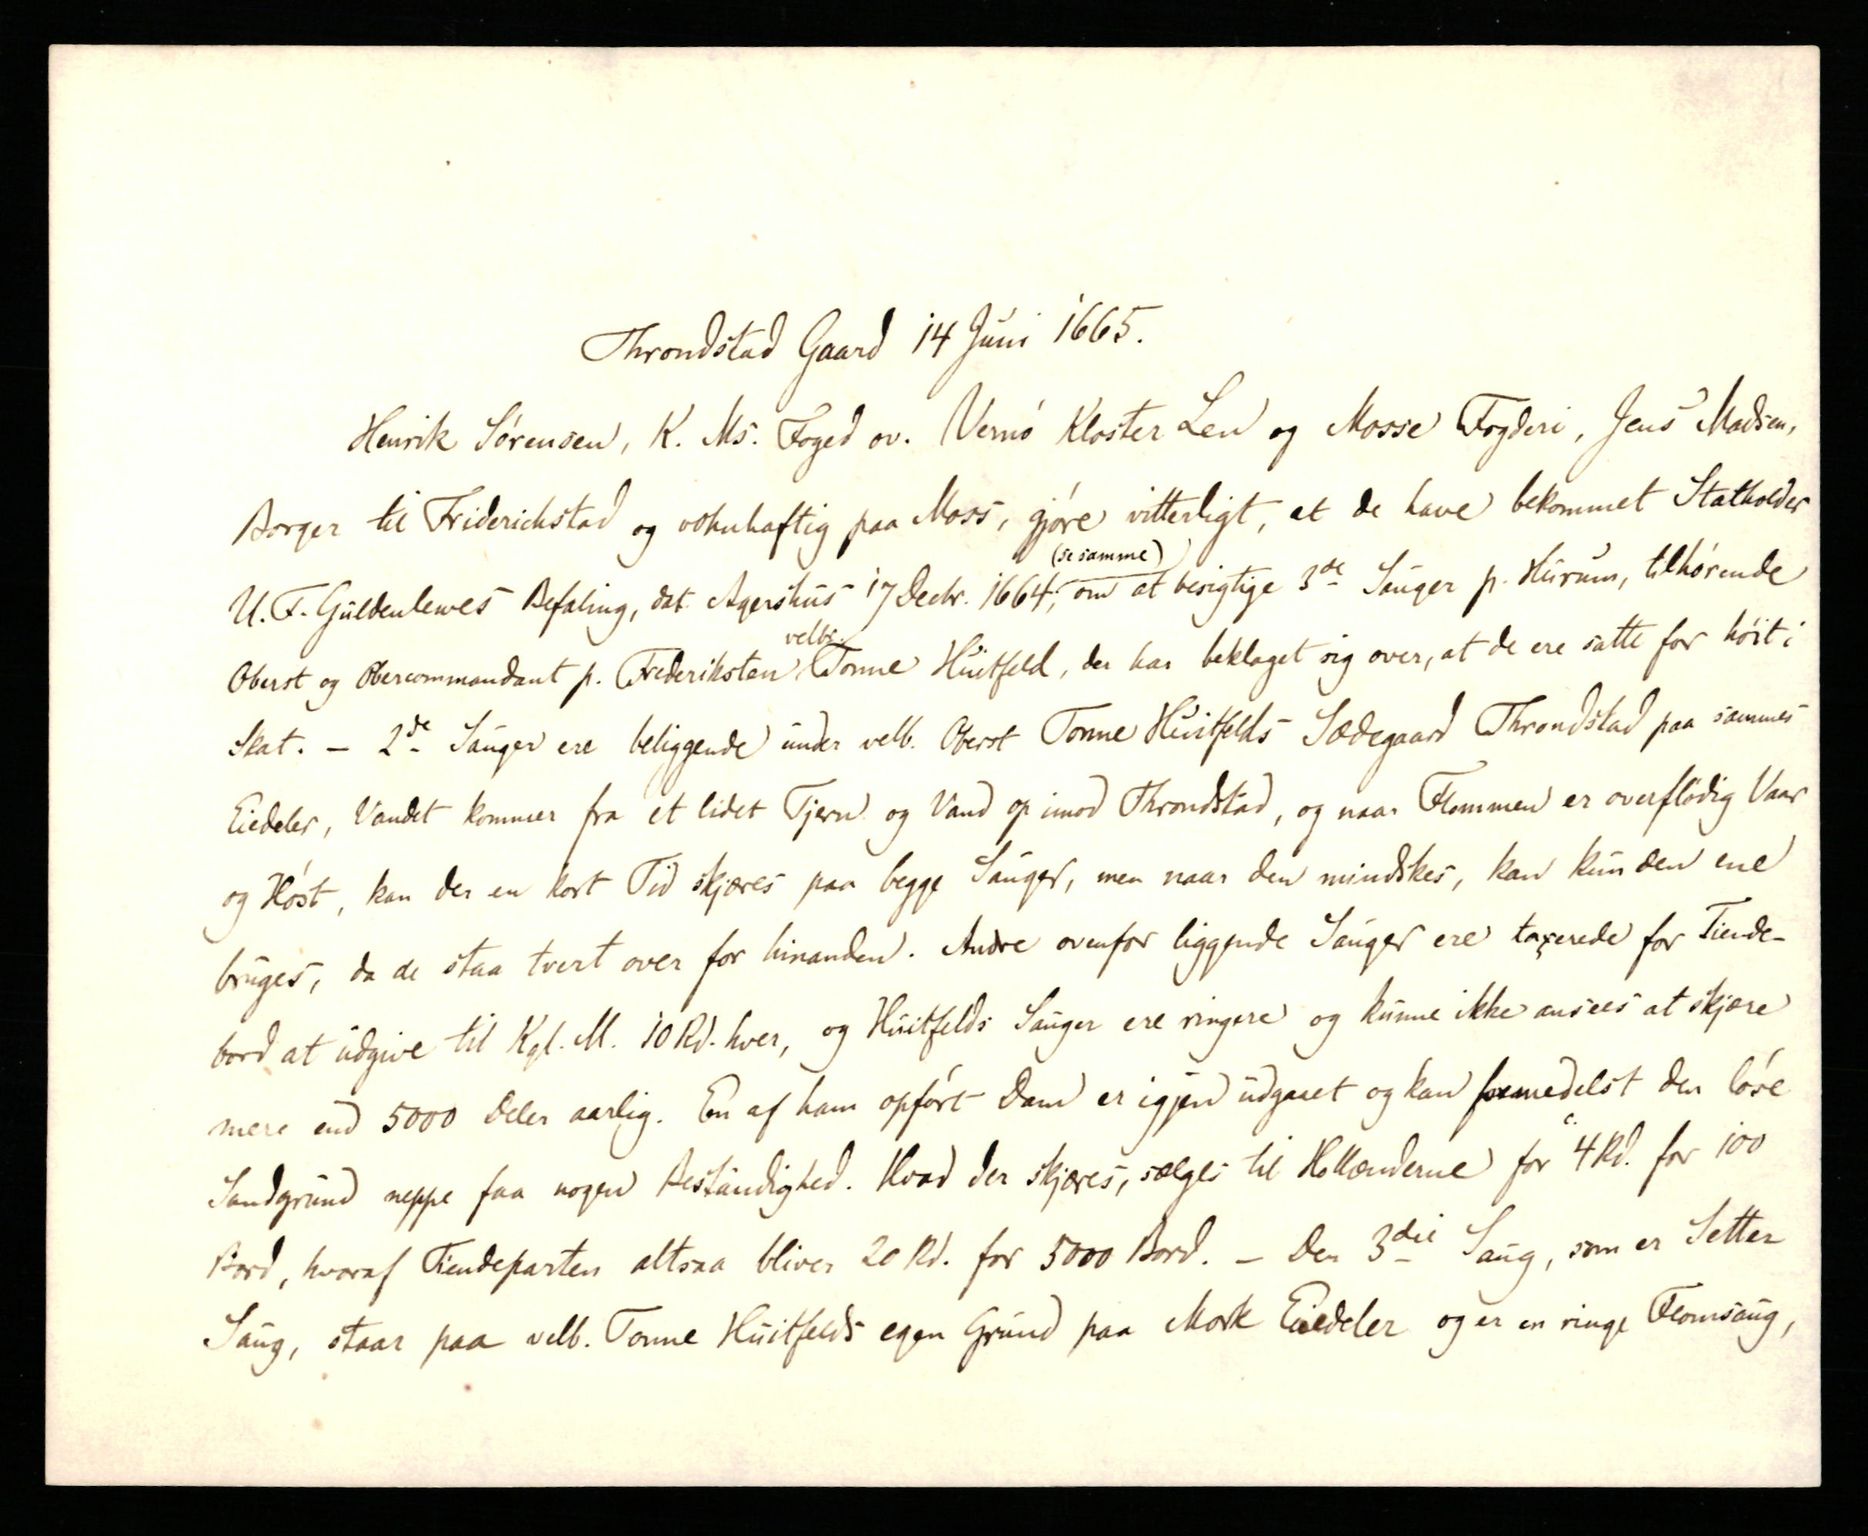 Throndstad Gaard 14 Juni 1665.
Henrik Sörensen, K. Ms. Foged ov. Vernö Kloster Len og Mosse Fogderi, Jens Madsen,
Borger til Friderichstad og vohnhaftig paa Moss, gjöre vitterligt, at de have bekommet Statholder
(se samme)
U. F. Güldenlewes Befaling, dat. Agershus 17 Decbr. 1664, om at besigtige 3de Sauger p. Hurum, tilhörende
velbr.
Oberst og Obercommandant p. Frederiksten Tonne Huitfeld, der har beklaget sig over, at de ere satte for höit i
Skat. – 2de Sauger ere beliggende under velb. Oberst Tonne Huitfelds Sædegaard Throndstad paa sammes
Eiedeler, Vandet kommer fra et lidet Tjern og Vand op imod Throndstad, og naar Flommen er overflödig Vaar
og Höst, kan der en kort Tid skjæres paa begge Sauger, men naar den mindskes, kan kun den ene
bruges, da de staa tvert over for hinanden. Andre ovenfor liggende Sauger ere taxerede for Tiende-
bord at udgive til Kgl. M. 10 Rd. hver, og Huitfelds Sauger ere ringere og kunne ikke ansees at skjære
mere end 5000 Deler aarlig. En af ham opfört Dam er igjen udgaaet og kan formedelst den löse
Sandgrund neppe faa nogen Bestandighed. Hvad der skjæres, sælges til Hollænderne for c. 4 Rd. for 100
Bord, hvoraf Tiendeparten altsaa bliver 20 Rd. for 5000 Bord. – Den 3die Saug, som er Setter
Saug, staar paa velb. Tonne Huitfelds egen Grund paa Mork Eiedeler og er en ringe Flomsaug,